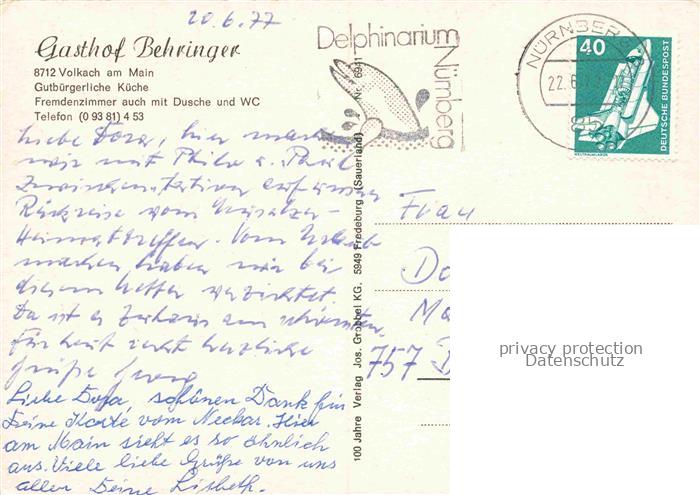 20.6.77
Gasthof Behringer
8712 Volkach am Main
Gutbürgerliche Küche
Fremdenzimmer auch mit Dusche und WC
Telefon (0 93 81) 4 53
Delphinarium
Nürnberg
NÜRNBERG
22.6.
40
DEUTSCHE BUNDESPOST
WELTRAUMLABOR
Liebe Dora, hier machen
wir mit Philo u. Paul
Zwischenstation auf unserer
Rückreise vom
Heimattreffen. Vom Urlaub
machen haben wir bei
diesem Wetter verzichtet.
Da ist es Zuhaus am schönsten.
Für heut recht herzliche
Grüße Georg
Liebe Dora, schönen Dank für
Deine Karte vom Neckar. Hier
am Main sieht es so ähnlich
aus. Viele liebe Grüße von uns
allen Deine Lisbeth.
100 Jahre Verlag Jos. Grobbel KG. 5949 Fredeburg (Sauerland) Nr. 6941
Frau
Do
Ma
757 B
privacy protection
Datenschutz